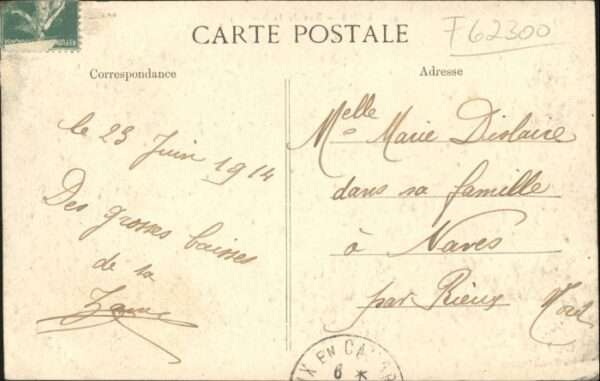 CARTE POSTALE
F62300
Correspondance
Adresse
le 23 Juin 1914
Des grosses baisses
de ta
Melle Marie Dislaire
dans sa famille
à Naves
par Rieux Nord
X EN CA
6 *